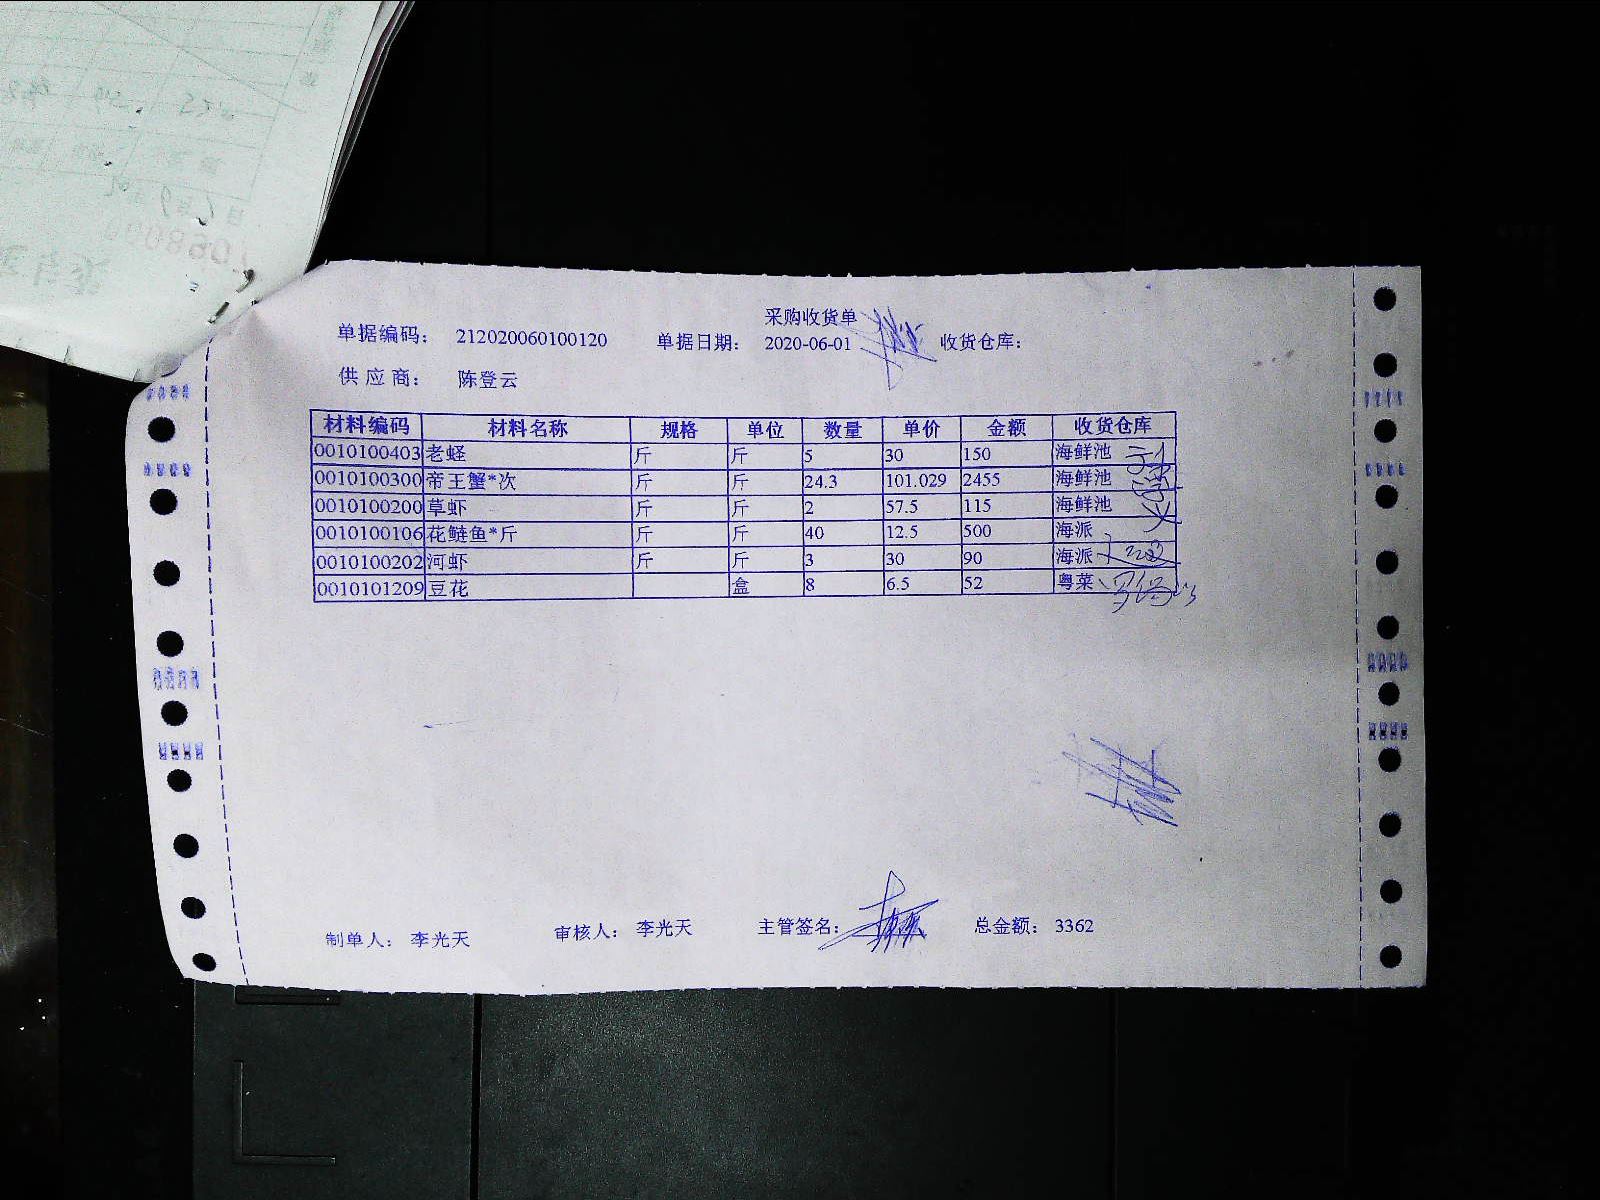 采购收货单
单据编码： 212020060100120 单据日期： 2020-06-01 收货仓库：
供应商： 陈登云
材料编码 材料名称 规格 单位 数量 单价 金额 收货仓库
0010100403 老蛏 斤 斤 5 30 150 海鲜池
0010100300 帝王蟹*次 斤 斤 24.3 101.029 2455 海鲜池
0010100200 草虾 斤 斤 2 57.5 115 海鲜池
0010100106 花鲢鱼*斤 斤 斤 40 12.5 500 海派
0010100202 河虾 斤 斤 3 30 90 海派
0010101209 豆花 盒 8 6.5 52 粤菜
制单人： 李光天 审核人： 李光天 主管签名： 总金额： 3362